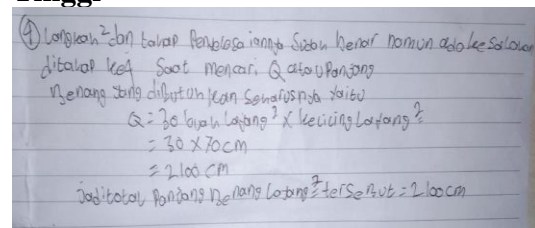 ④ Langkah² dan tahap Penyelesaiannya Sudah benar namun ada kesalahan
ditahap ke4 Saat mencari Q atau Panjang
Benang yang dibutuhkan Seharusnya Yaitu
Q = 30 buah layang² x keliling layang²
= 30 x 70 cm
= 2100 cm
Jadi total Panjang Benang Layang² tersebut = 2100 cm